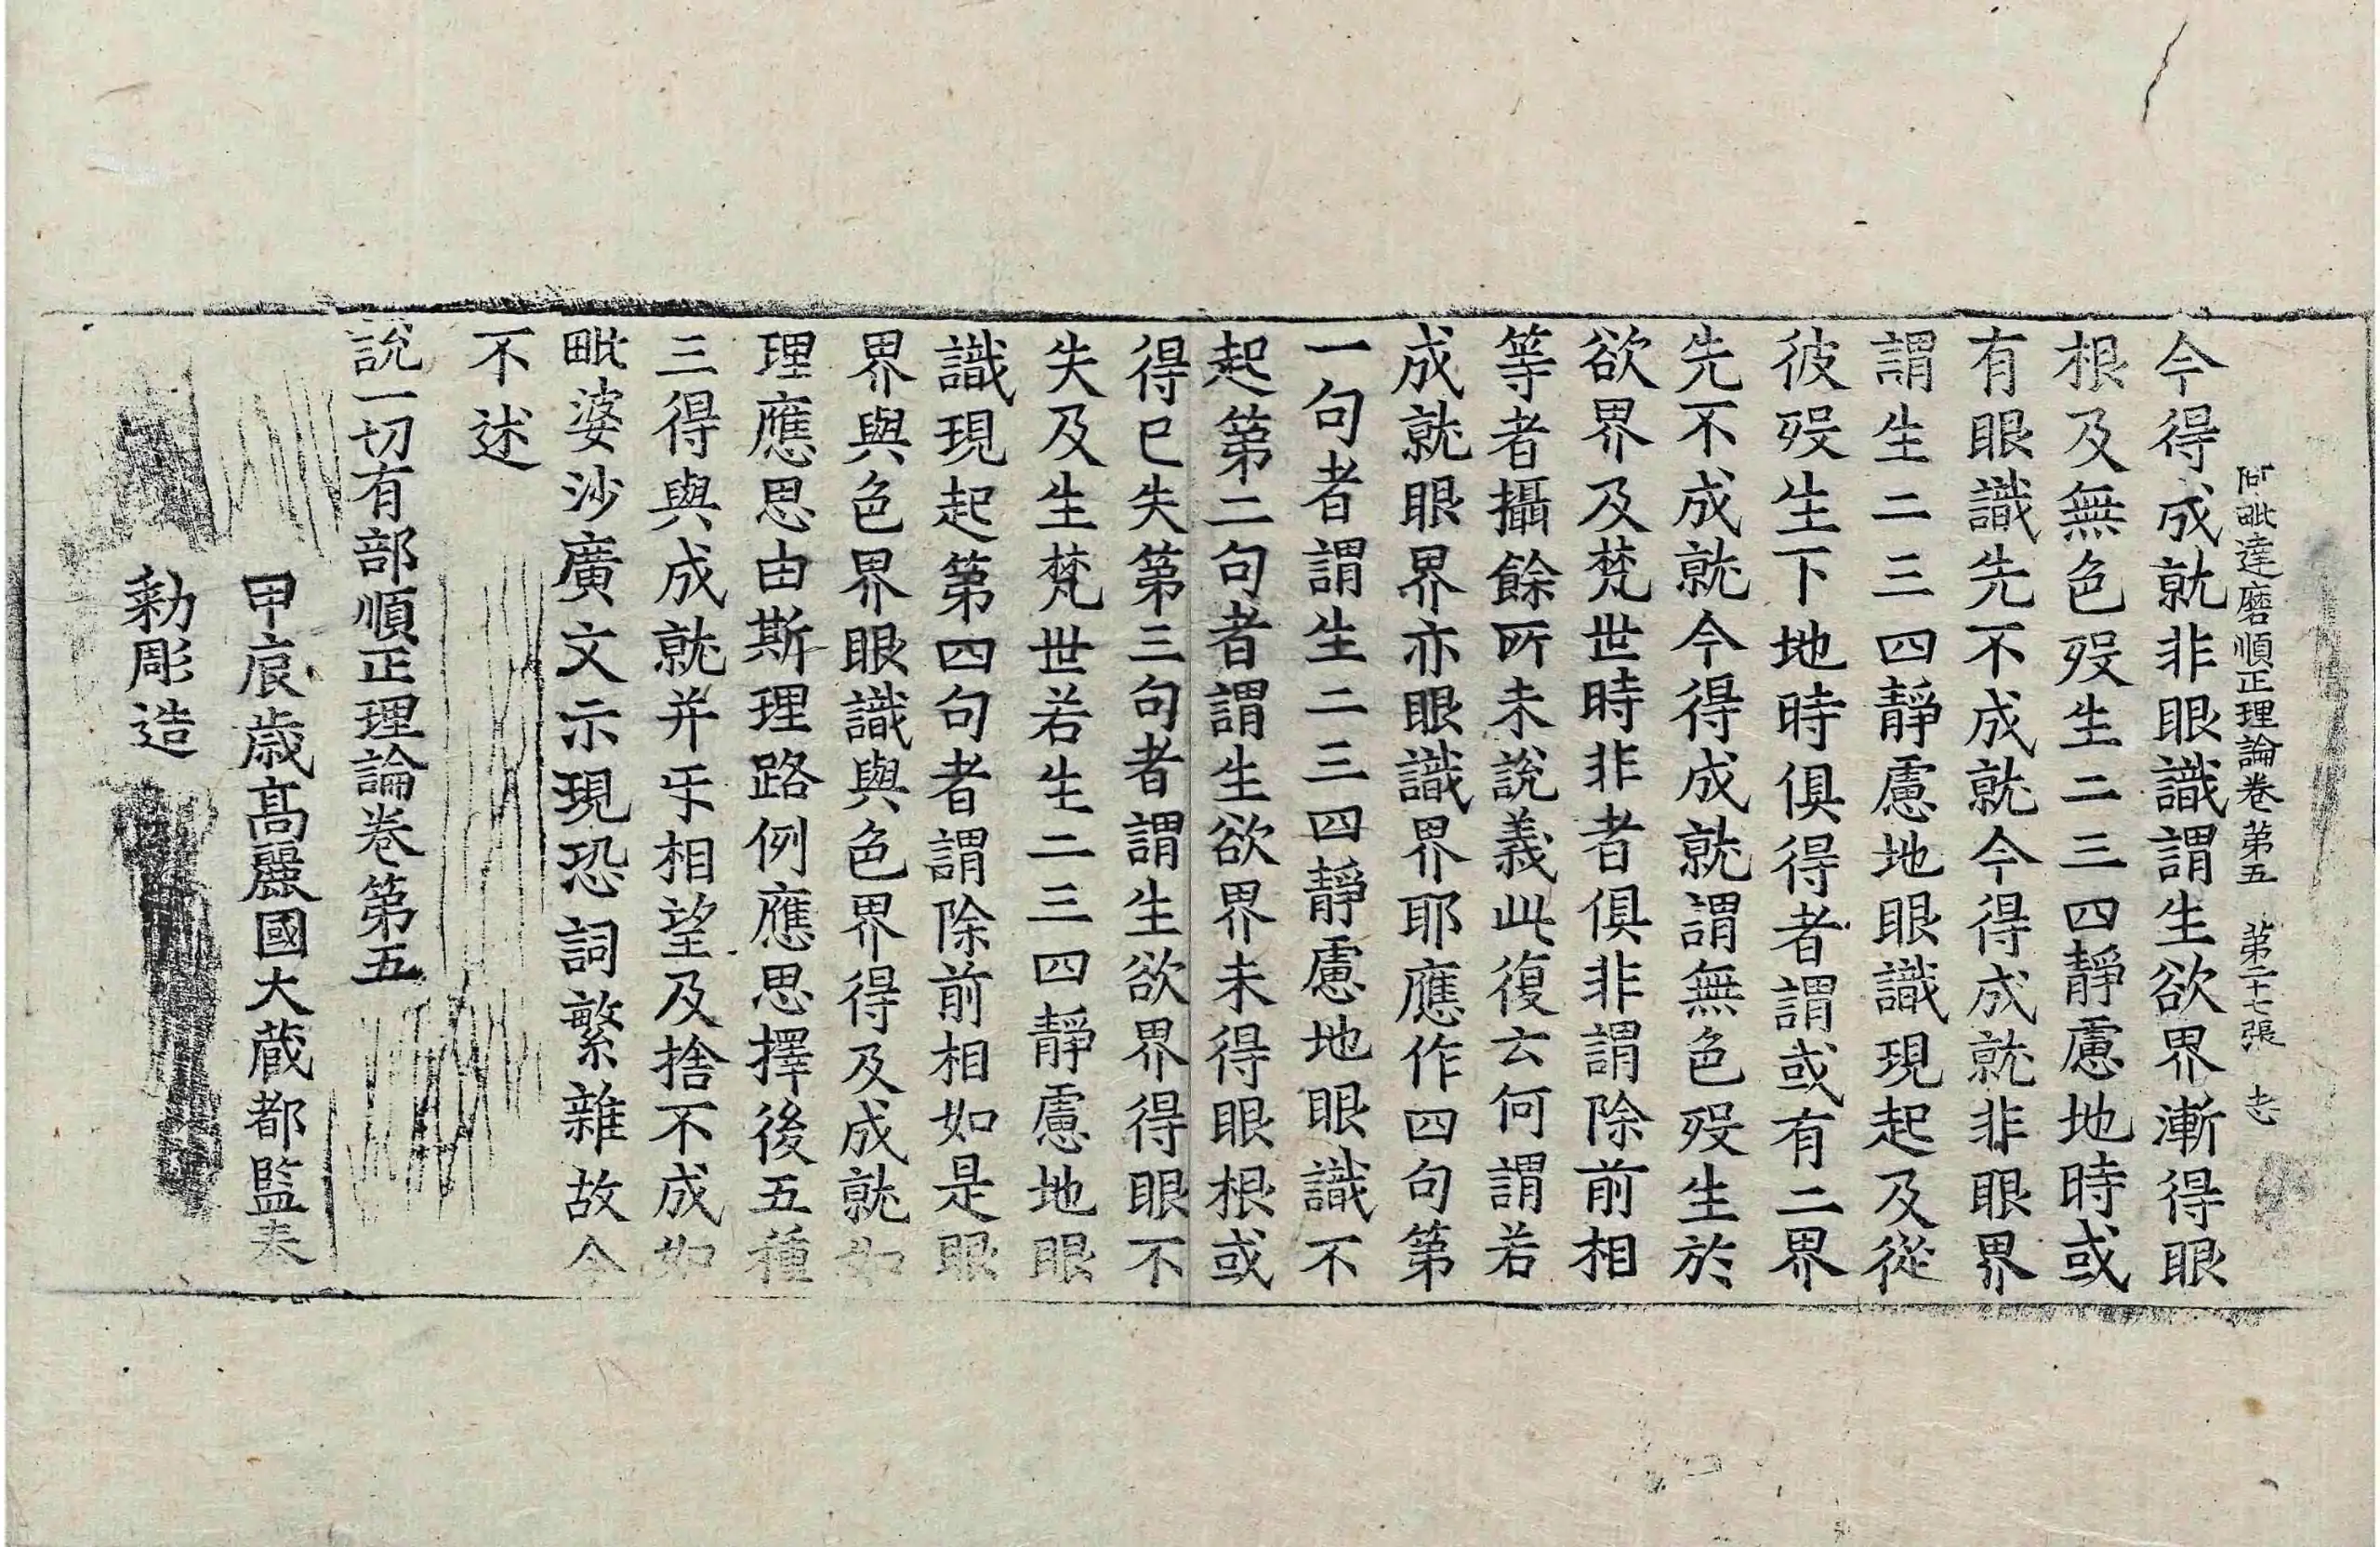 阿毗達磨順正理論卷第五 第二十七張 志
今得成就非眼識謂生欲界漸得眼
根及無色歿生二三四靜慮地時或
有眼識先不成就今得成就非眼界
謂生二三四靜慮地眼識現起及從
彼歿生下地時俱得者謂或有二界
先不成就今得成就謂無色歿生於
欲界及梵世時非者俱非謂除前相
等者攝餘所未說義此復云何謂若
成就眼界亦眼識界耶應作四句第
一句者謂生二三四靜慮地眼識不
起第二句者謂生欲界未得眼根或
得已失第三句者謂生欲界得眼不
失及生梵世若生二三四靜慮地眼
識現起第四句者謂除前相如是眼
界與色界眼識與色界得及成就如
理應思由斯理路例應思擇後五種
三得與成就并㸦相望及捨不成如
毗婆沙廣文示現恐詞繁雜故今
不述
說一切有部順正理論卷第五
甲辰歲高麗國大藏都監奉
勑彫造